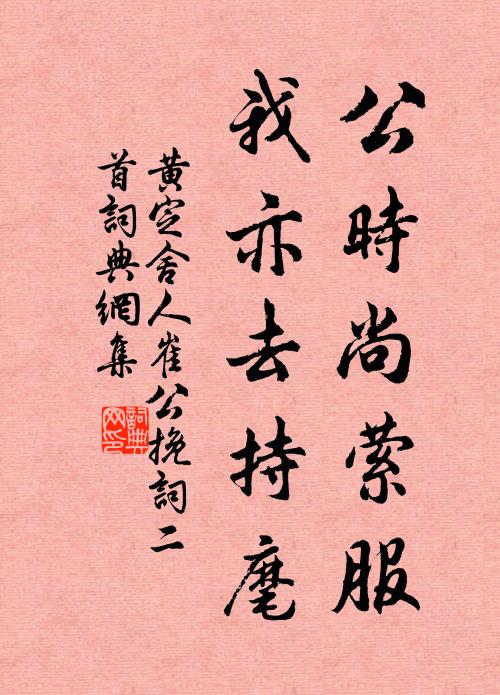 公時尚縈服
我亦去持麾
黄定舍人崔公挽詞二
首詞典網集
詞典
网印